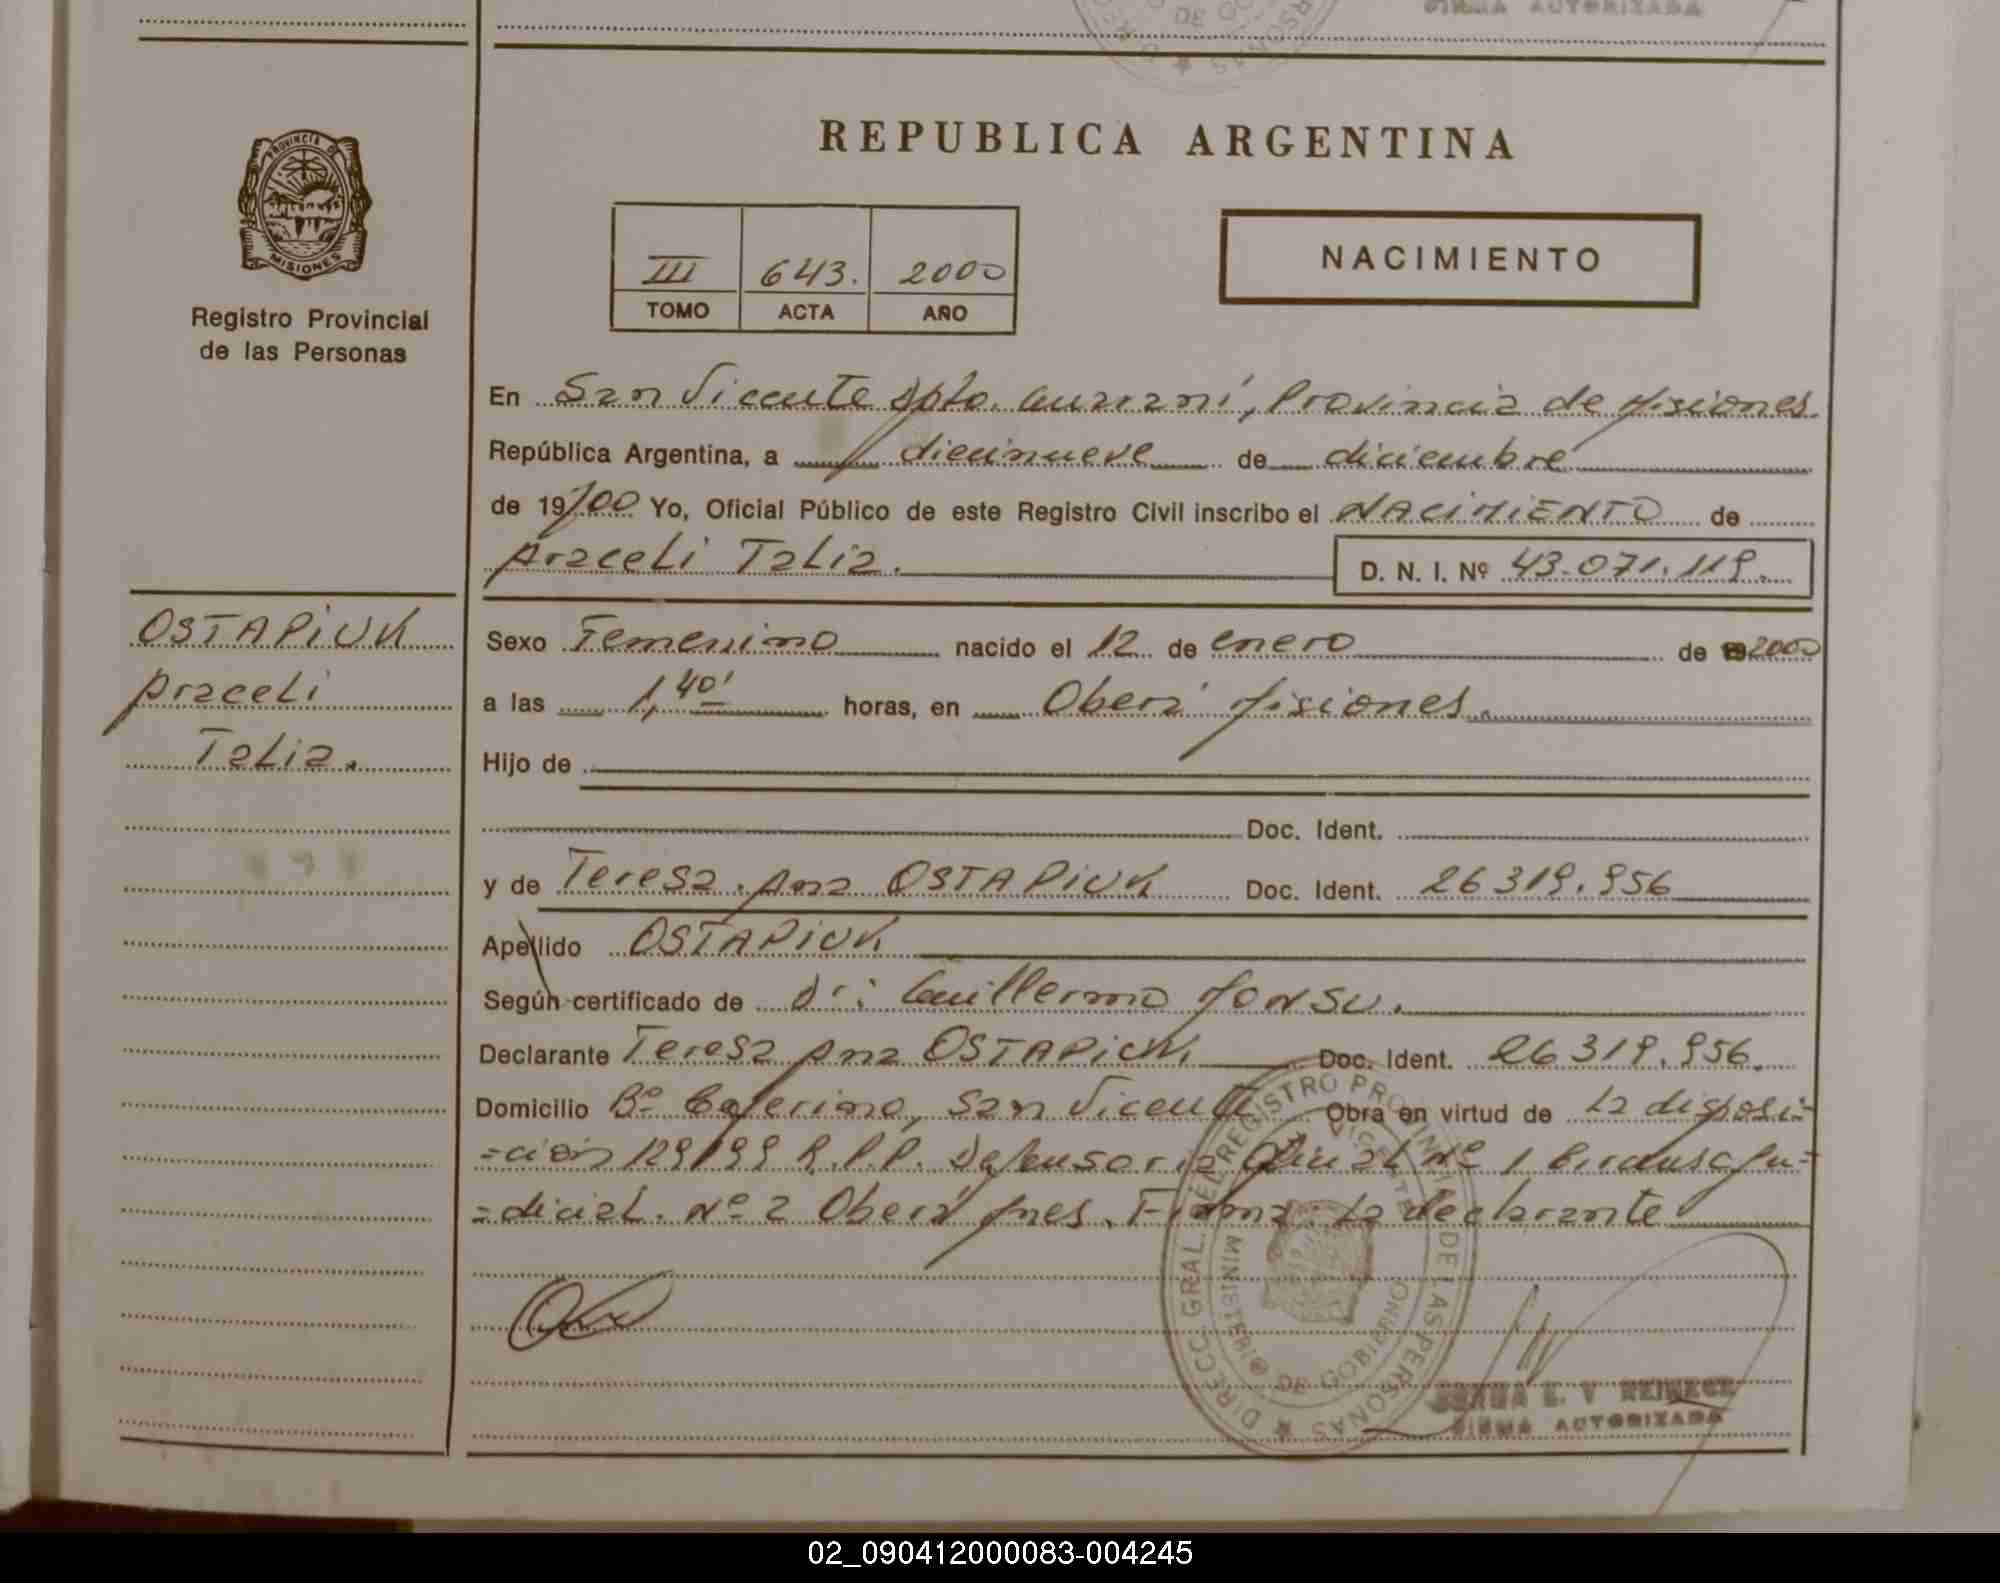 FIRMA AUTORIZADA
REPUBLICA ARGENTINA
PROVINCIA DE
MISIONES
Registro Provincial
de las Personas
III 643. 2000
TOMO ACTA AÑO
NACIMIENTO
En San Vicente Dpto. Guaraní, Provincia de Misiones
República Argentina, a diecinueve de diciembre
de 19/00 Yo, Oficial Público de este Registro Civil inscribo el NACIMIENTO de
Araceli Talia. D. N. I. Nº 43.071.119.
OSTAPIUK
Araceli
Talia.
Sexo Femenino nacido el 12 de enero de 2000
a las 1,40' horas, en Oberá Misiones.
Hijo de
Doc. Ident.
y de Teresa Ana OSTAPIUK Doc. Ident. 26319.956
Apellido OSTAPIUK
Según certificado de Dr: Guillermo
Declarante Teresa Ana OSTAPIUK Doc. Ident. 26319.956.
Domicilio Bº Ceferino, San Vicente Obra en virtud de la disposi=
=ción 129/99 R.P.P. Defensoria Oficial Nº 1 Circunsc. Ju=
=dicial. Nº 2 Oberá Mnes. Firma: la declarante
DIRECC. GRAL. DEL REGISTRO PROVINCIAL DE LAS PERSONAS
MINISTERIO DE GOBIERNO
SAN VICENTE
E. V REINECK
FIRMA AUTORIZADA
02_090412000083-004245